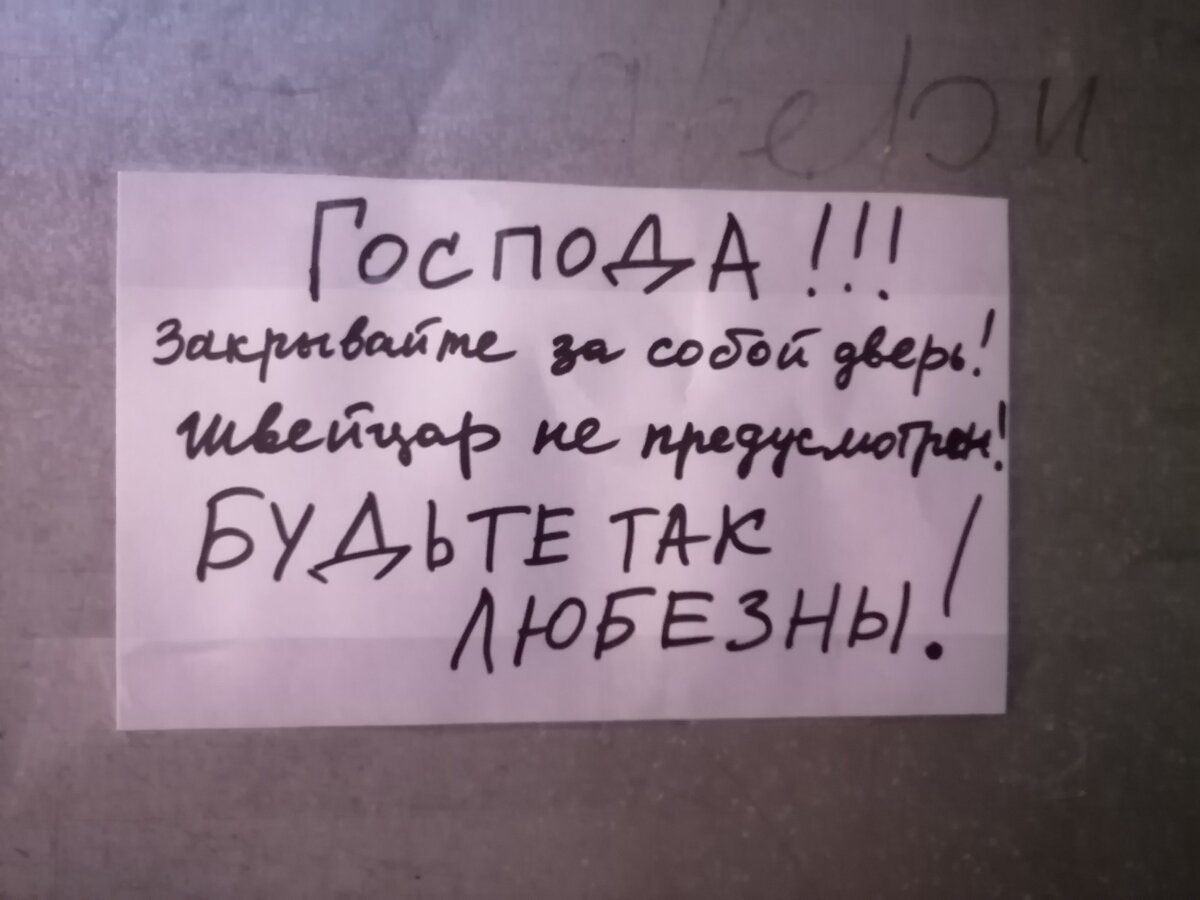 Господа!!!
Закрывайте за собой дверь!
Швейцар не предусмотрен!
БУДЬТЕ ТАК
ЛЮБЕЗНЫ!